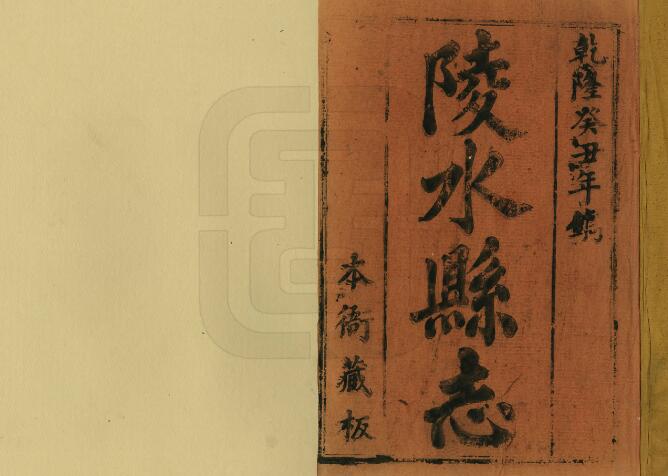 乾隆癸丑年鐫
陵水縣志
本衙藏板